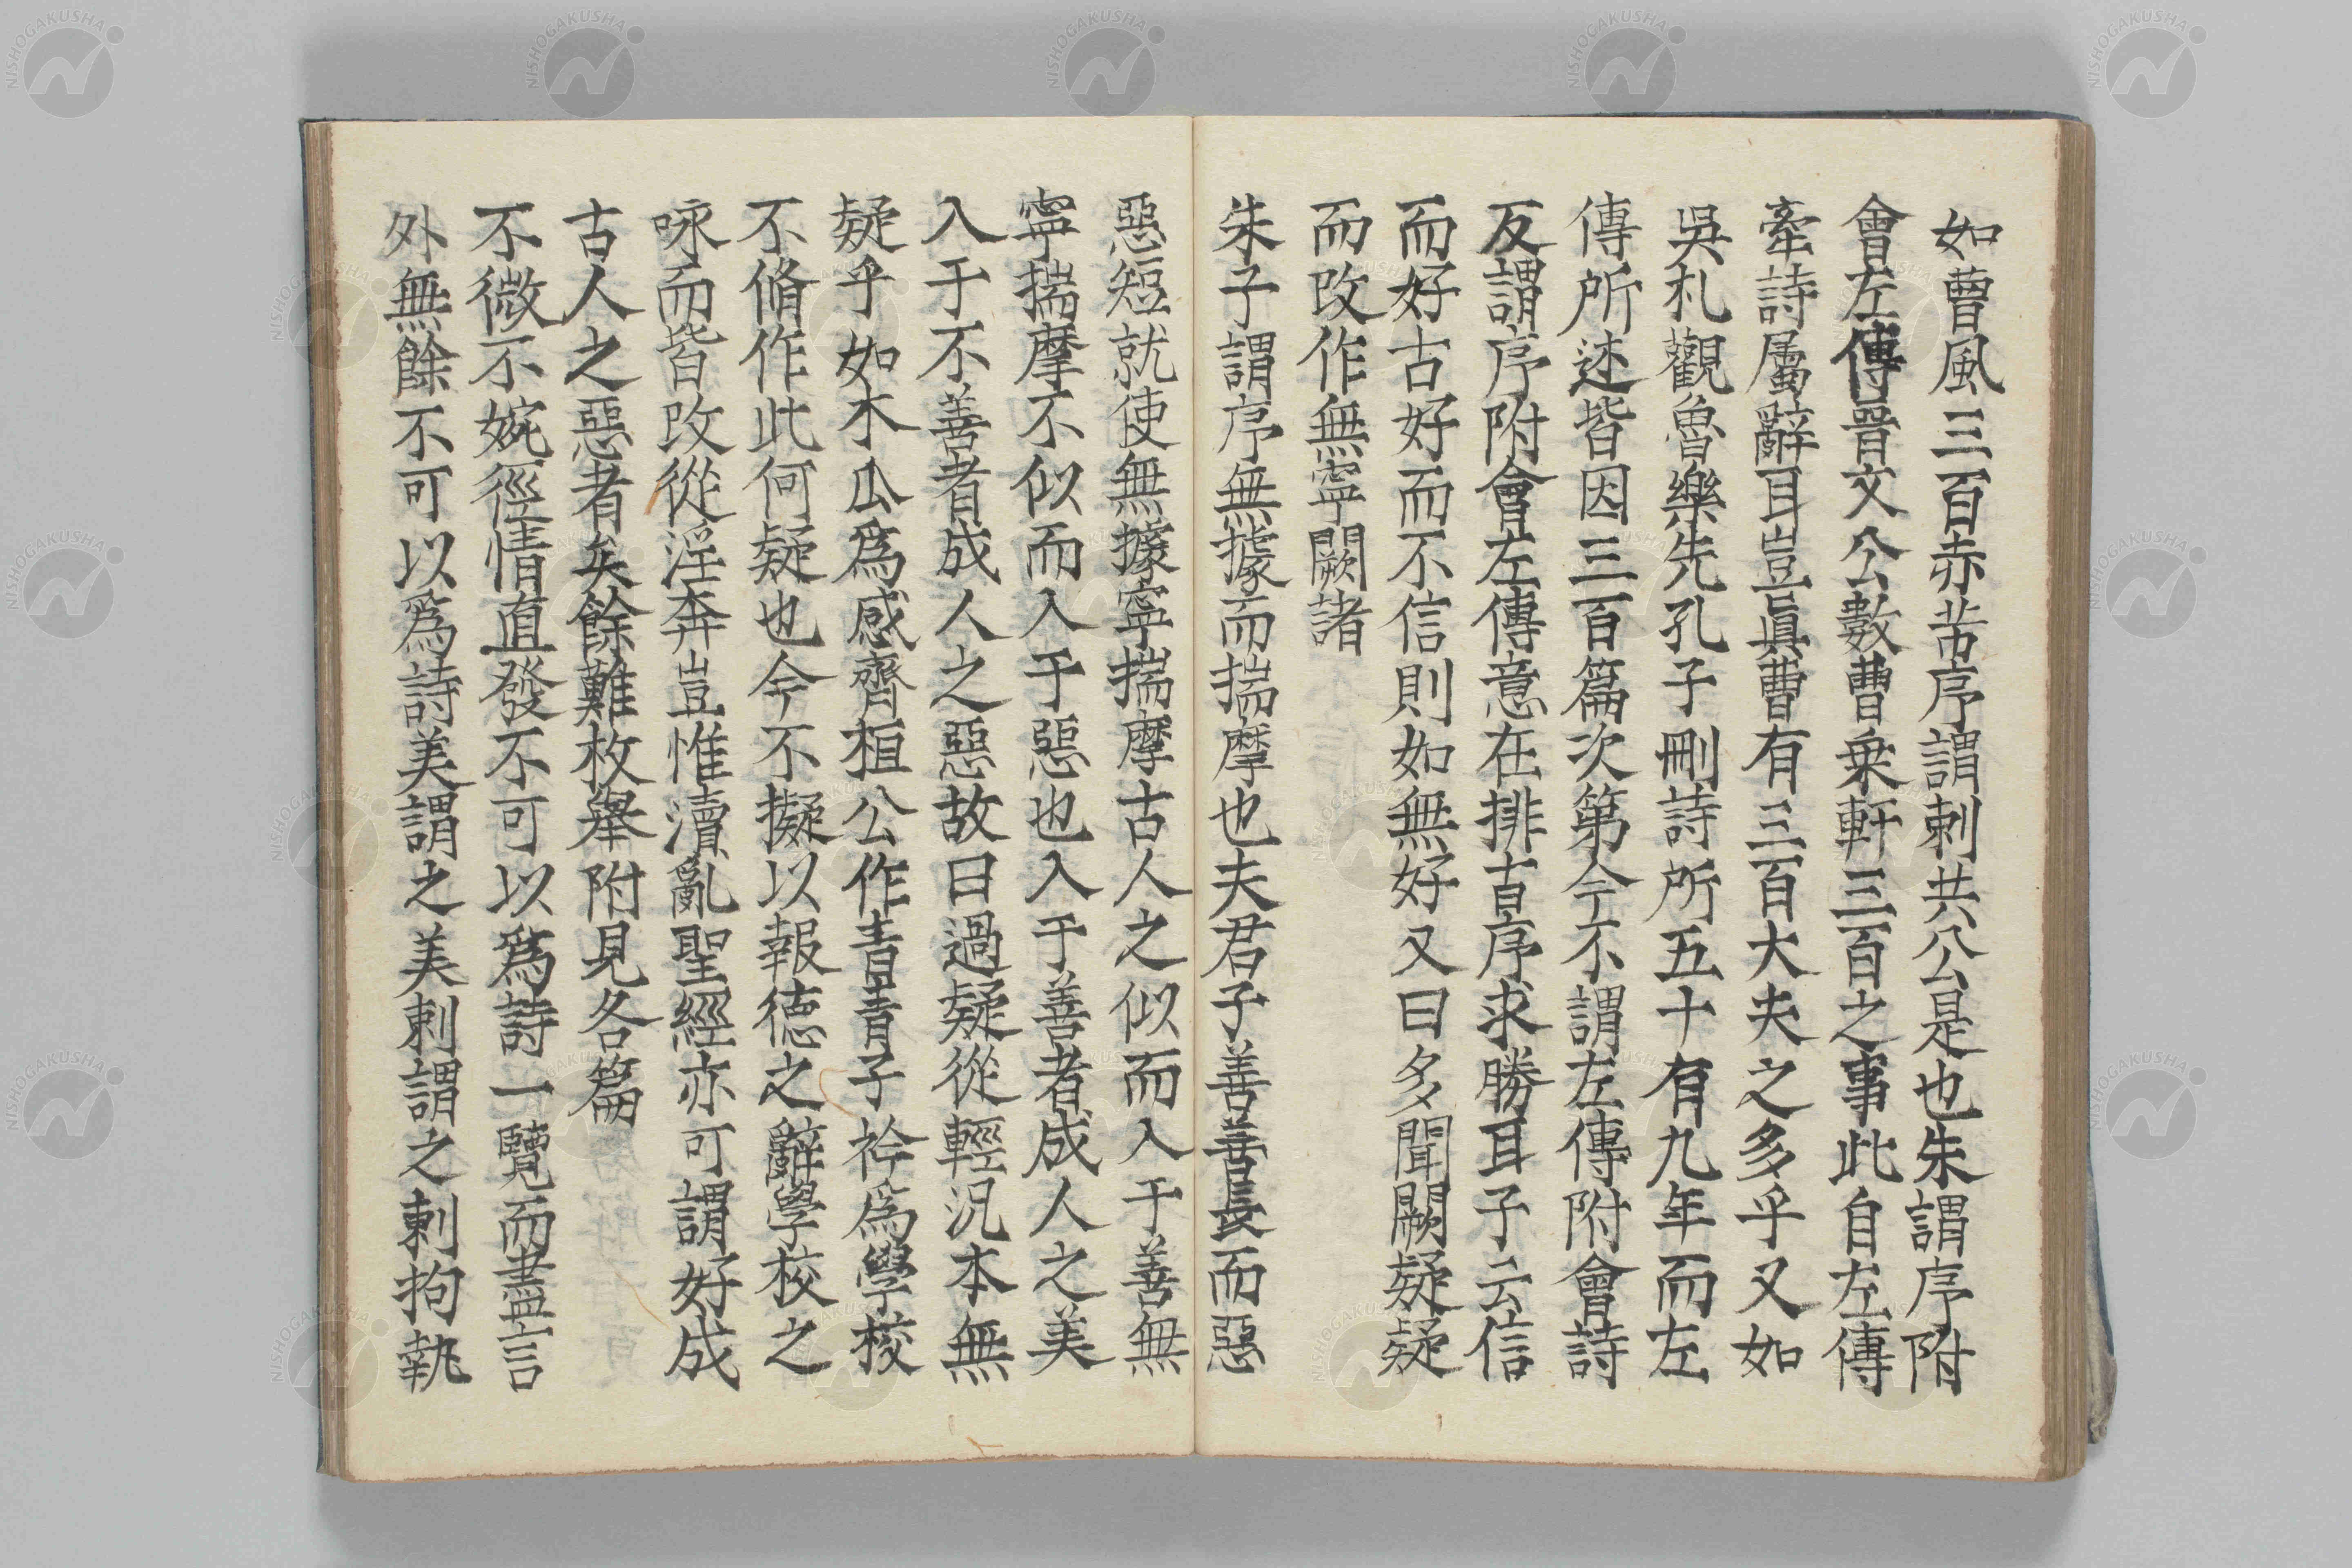 如曹風三百赤芾序謂刺共公是也朱謂序附
會左傳晋文公數曹乗軒三百之事此自左傳
牽詩屬辭耳豈眞曹有三百大夫之多乎又如
吳札觀魯樂先孔子刪詩所五十有九年而左
傳所述皆因三百篇次第今不謂左傳附會詩
反謂序附會左傳意在排古序求勝耳子云信
而好古好而不信則如無好又曰多聞闕疑疑
而改作無寧闕諸
朱子謂序無據而揣摩也夫君子善善長而惡
惡短就使無據寧揣摩古人之似而入于善無
寧揣摩不似而入于惡也入于善者成人之美
入于不善者成人之惡故曰過疑從輕况本無
疑乎如木瓜爲感齊桓公作青青子衿爲學校
不脩作此何疑也今不擬以報德之辭學校之
咏而皆改從淫奔豈惟瀆亂聖經亦可謂好成
古人之惡者矣餘難枚舉附見各篇
不微不婉徑情直發不可以爲詩一覽而盡言
外無餘不可以爲詩美謂之美刺謂之刺拘執
NISHOGAKUSHA